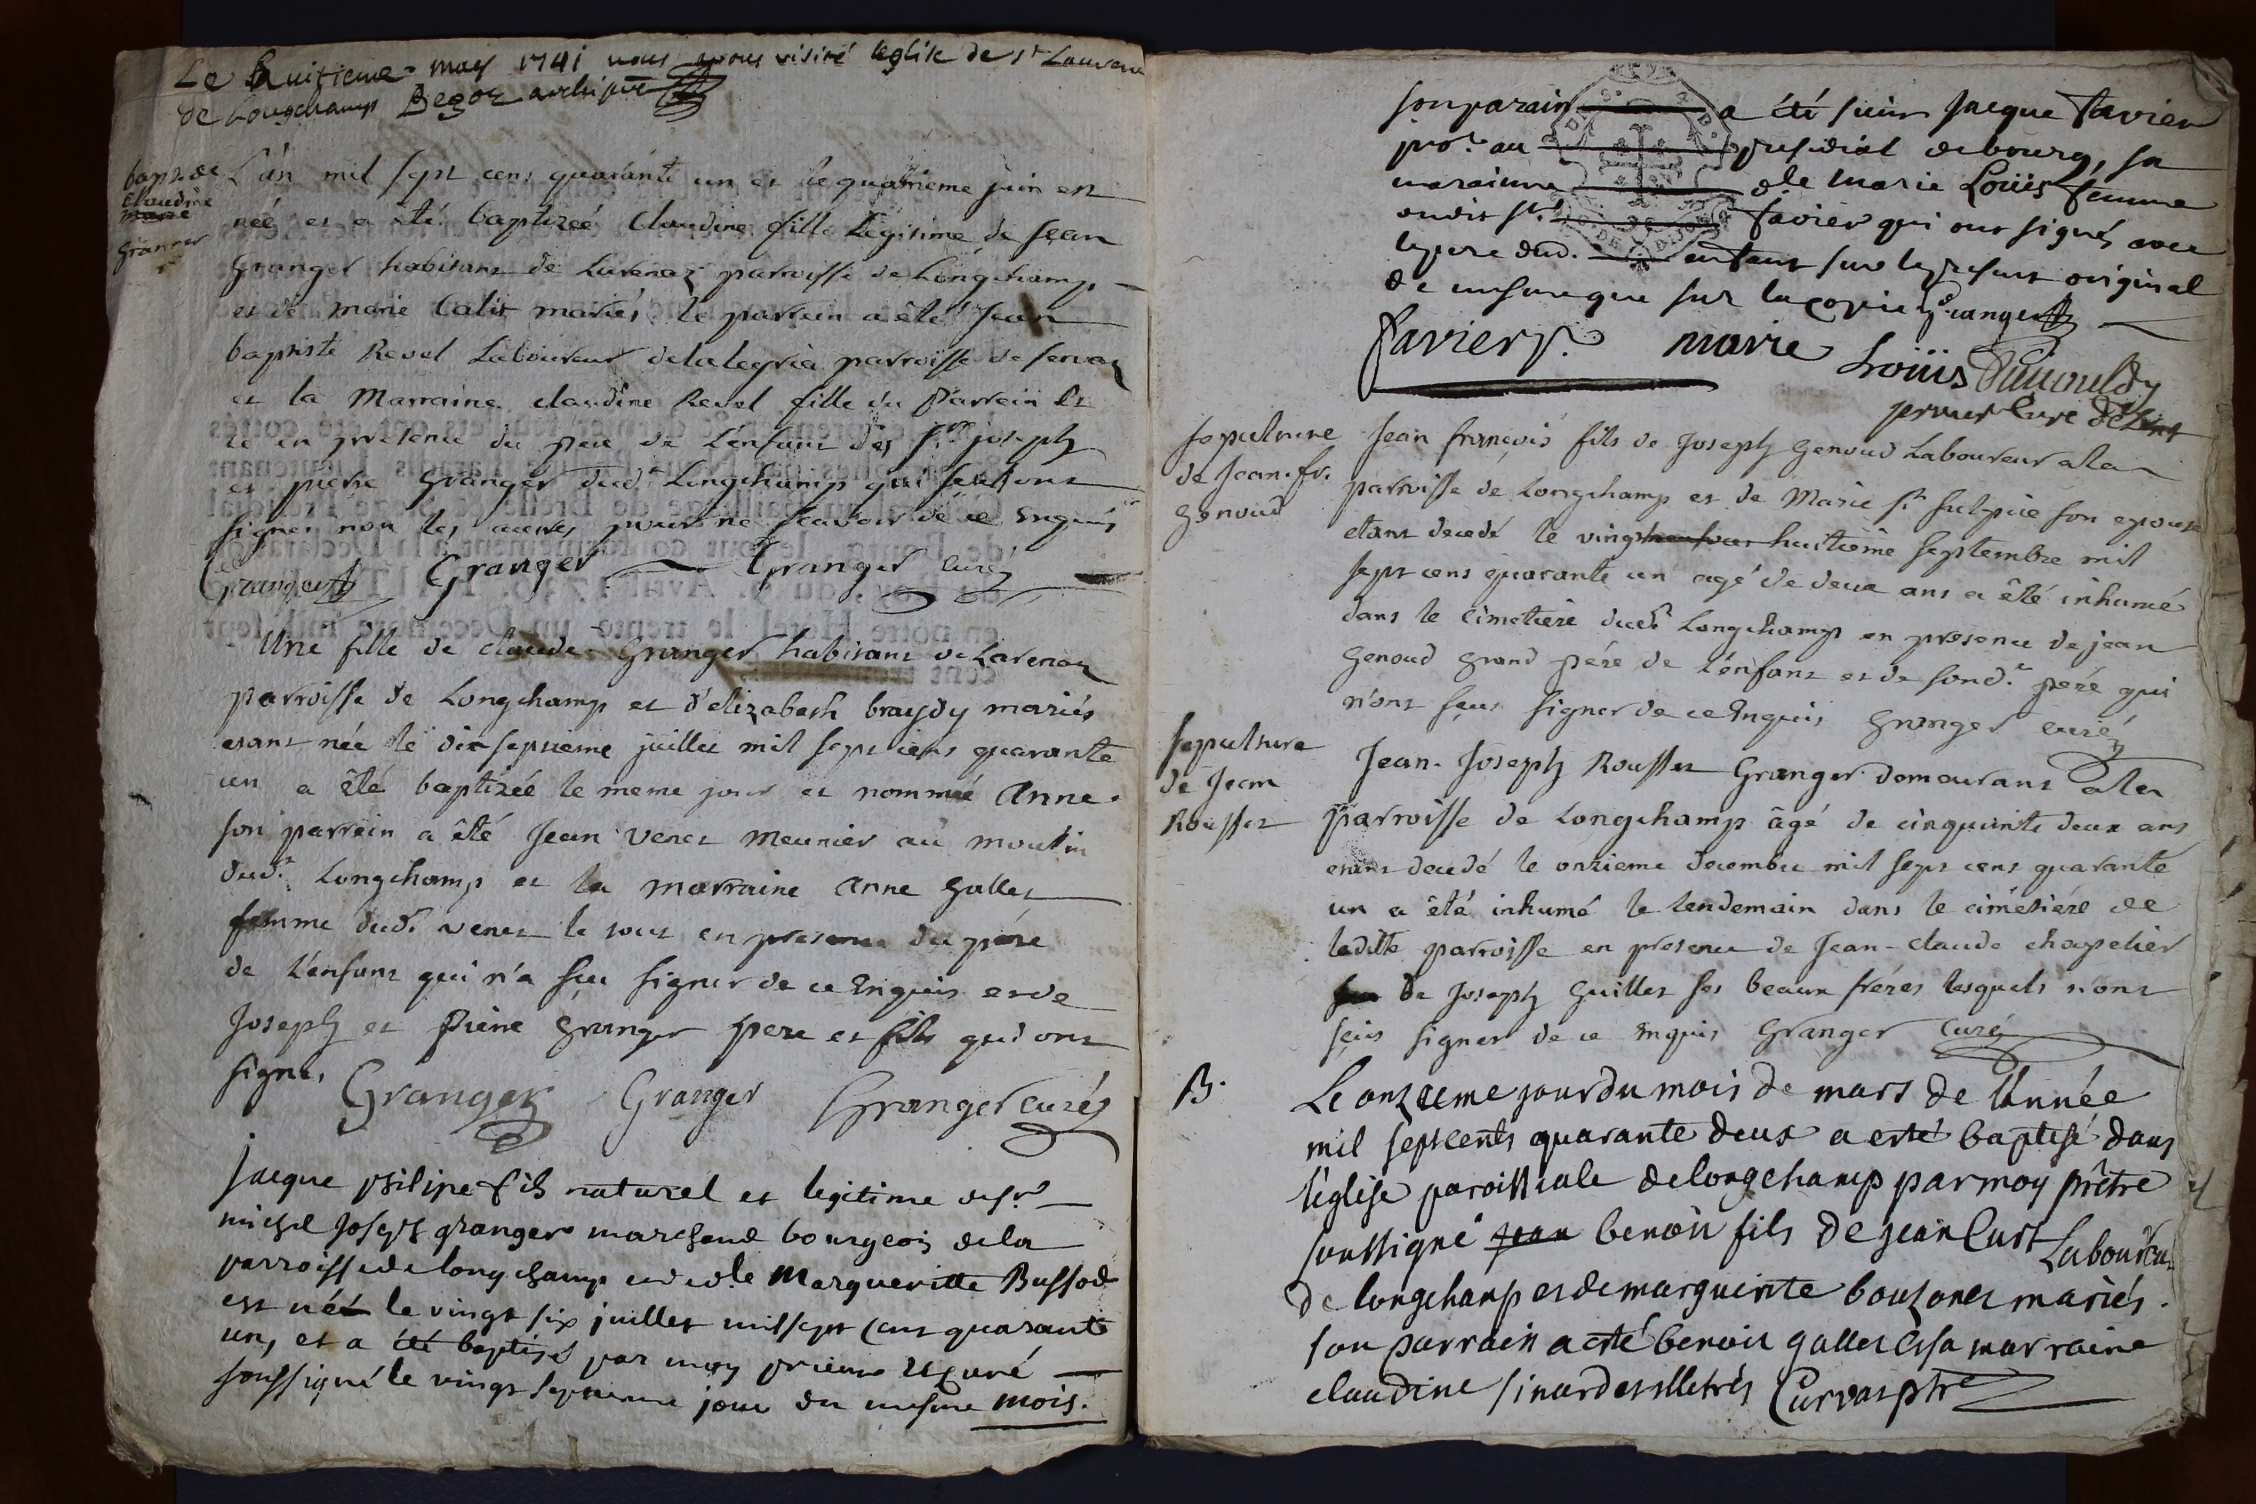 Le huitieme may 1741 nous avons visité leglise de st Laurent
de Longchamp Begoz archipre
bapt. de
Claudine
marie
granger
L'an mil sept cens quarante un et le quatrieme juin est
née et a été baptizeé Claudine fille Legitime de Jean
Granger habitant de Lurenaz parroisse de Longchamp
et de marie Calit mariés le parrain a été Jean
baptiste Revel Laboureur parroisse de servaz
et la Marraine claudine Revel fille du Parrain Et
ce en presence du pere de L'enfant des srs joseph
et pierre Granger dud. Longchamp qui seuls ont
signer non les autres pour ne scavoir de ce Enquis
Granger Granger Granger curé
Une fille de claude Granger habitant de Larenaz
parroisse de Longchamp et d'elizabeth braydy mariés
etant née le dixseptieme juillet mil sept cens quarante
un a été baptizée le meme jour et nommée Anne
son parrain a été Jean Venet meunier au moulin
dud. Longchamp et la marraine Anne gallet
femme dud. venet le tout en presence du pére
de L'enfant qui n'a sçu signer de ce Enquis et de
Joseph et Pierre Granger pere et fils qui ont
signé,
Granger Granger Granger curé
Jacque philipe fils naturel et legitime du sr
michel Joseph granger marchand bourgeois de la
parroisse de longchamp et de dle Margueritte Bussod
est né le vingt six juillet mil sept cent quarante
un, et a été baptisé par moy prieur et curé
soussigné le vingt septieme jour du mesme mois.
son parain a été sieur Jacque Favier
pror. au presidial de bourg, sa
maraine dle marie Loüis femme
audit sr. favier qui ont signés avec
le pere dud. enfant sur le present original
de mesme que sur la copie Granger
Favier marie Loüis
prieur Curé
sepulture
de Jean fr.
Genoud
Jean françois fils de Joseph Genoud Laboureur a la
parroisse de Longchamp et de Marie st sulpice son epouse
etant decedé le vingt huitième septembre mil
sept cens quarante un agé de deux ans a été inhumé
dans le cimetiere dud. Longchamp en presence de jean
Genoud grand pére de L'enfant et de sond. pere qui
n'ont sçus signer de ce Enquis Granger curé
sepulture
de Jean
Rousset
Jean-Joseph Rousset Granger demeurant a la
parroisse de Longchamp âgé de cinquante deux ans
etant decedé le onzieme decembre mil sept cens quarante
un a été inhumé le lendemain dans le cimétiére de
ladite parroisse en presence de Jean-claude chapelier
de Joseph Guillet ses beaux fréres lesquels n'ont
sçus signer de ce Enquis Granger Curé
B.
Le onzieme jour du mois de mars de l'année
mil septcents quarante deux a esté baptisé dans
l'église paroissiale de longchamp par moy prêtre
soussigné jean benoit fils de jean Curt Laboureur
de longchamp et de marguerite bouzonet mariés.
son parrain a esté benoit gallet et sa marraine
claudine sinard illetrés Curvat ptre